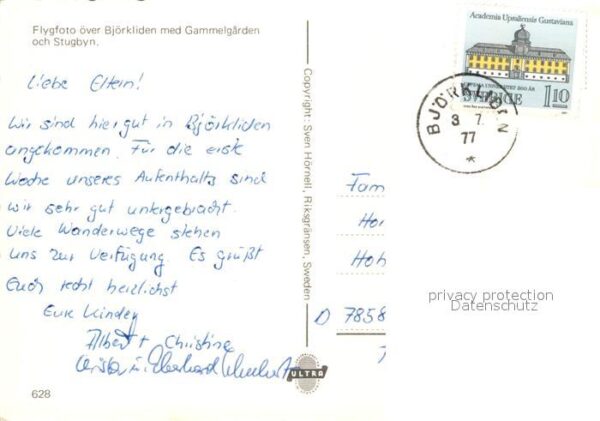 Flygfoto över Björkliden med Gammelgården
och Stugbyn.
Liebe Eltern!
Wir sind hier gut in Björkliden
angekommen. Für die erste
Woche unseres Aufenthalts sind
wir sehr gut untergebracht.
Viele Wanderwege stehen
uns zur Verfügung. Es grüßt
Euch recht herzlichst
Eure Kinder
Albert + Christine
u. Eberhard
628
Copyright: Sven Hörnell, Riksgränsen, Sweden
ULTRA
Academia Upsaliensis Gustaviana
UNIVERSITET 500 ÅR
SVERIGE 110
BJÖRKLIDEN
3 7.
77
*
Fam
Hor
Hoh
D 7858
privacy protection
Datenschutz